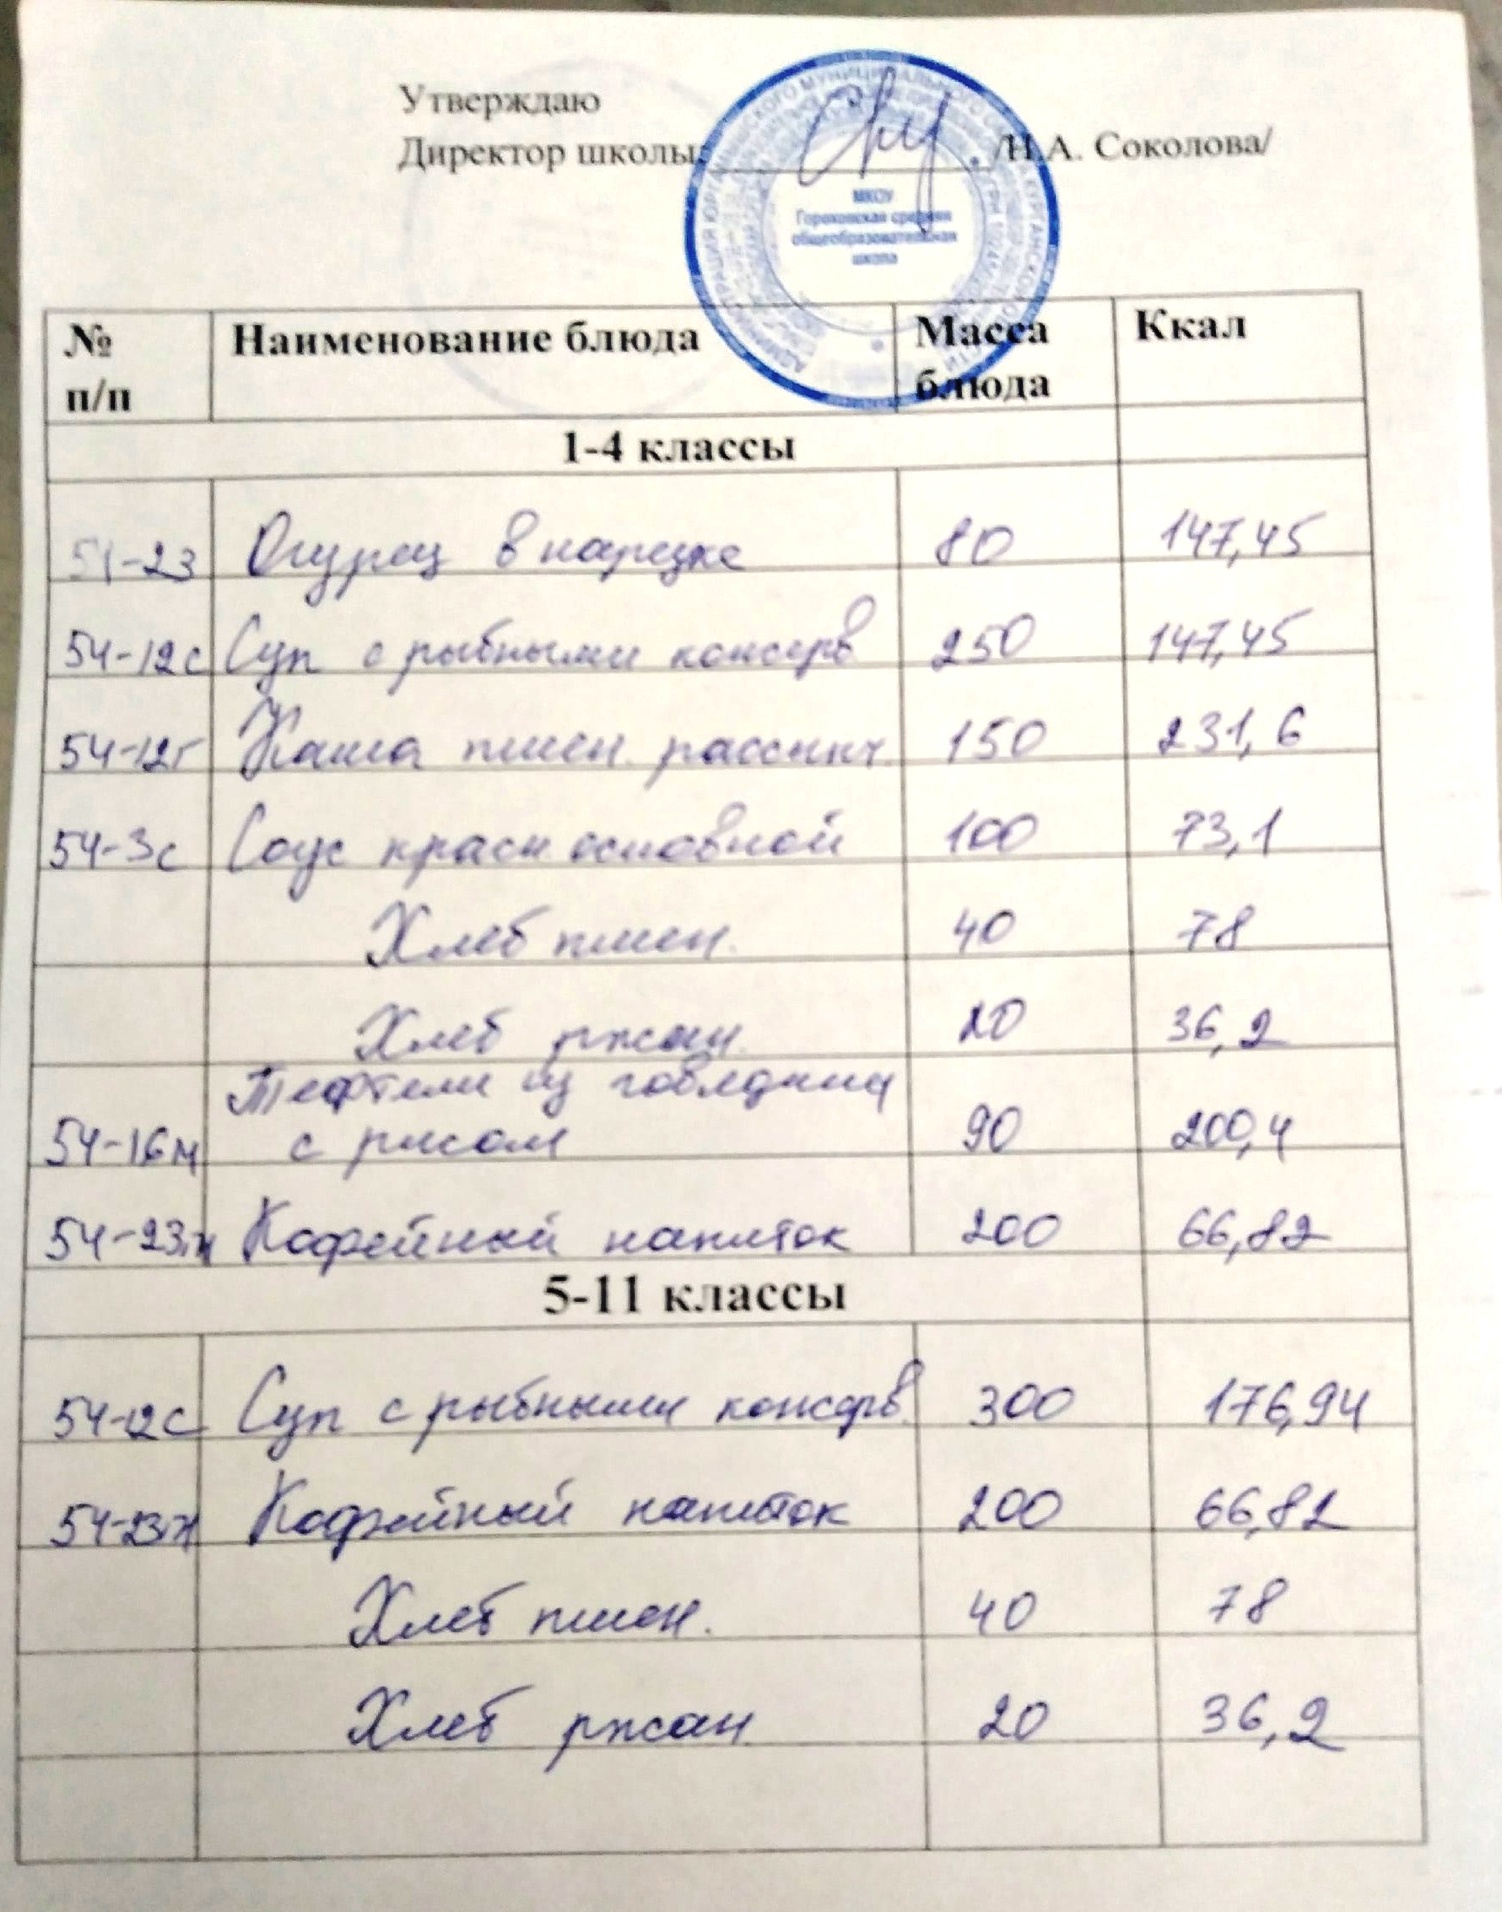 Утверждаю
Директор школы: /Н.А. Соколова/
МКОУ
Гороховская средняя
общеобразовательная
школа
№ п/п Наименование блюда Масса блюда Ккал
1-4 классы
54-23 Огурец в нарезке 80 147,45
54-12с Суп с рыбными консерв 250 147,45
54-12г Каша пшен. рассыпч. 150 231,6
54-3с Соус красн. основной 100 73,1
Хлеб пшен. 40 78
Хлеб ржан. 20 36,2
Тефтели из говядины
54-16м с рисом 90 200,4
54-23гн Кофейный напиток 200 66,82
5-11 классы
54-12с Суп с рыбными консерв. 300 176,94
54-23гн Кофейный напиток 200 66,82
Хлеб пшен. 40 78
Хлеб ржан. 20 36,2